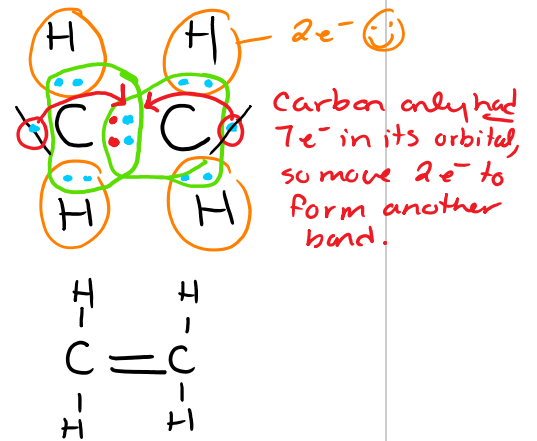 H H 2e⁻
C C
Carbon only had
7e⁻ in its orbital,
so move 2e⁻ to
form another
bond.
H H
H H
C = C
H H